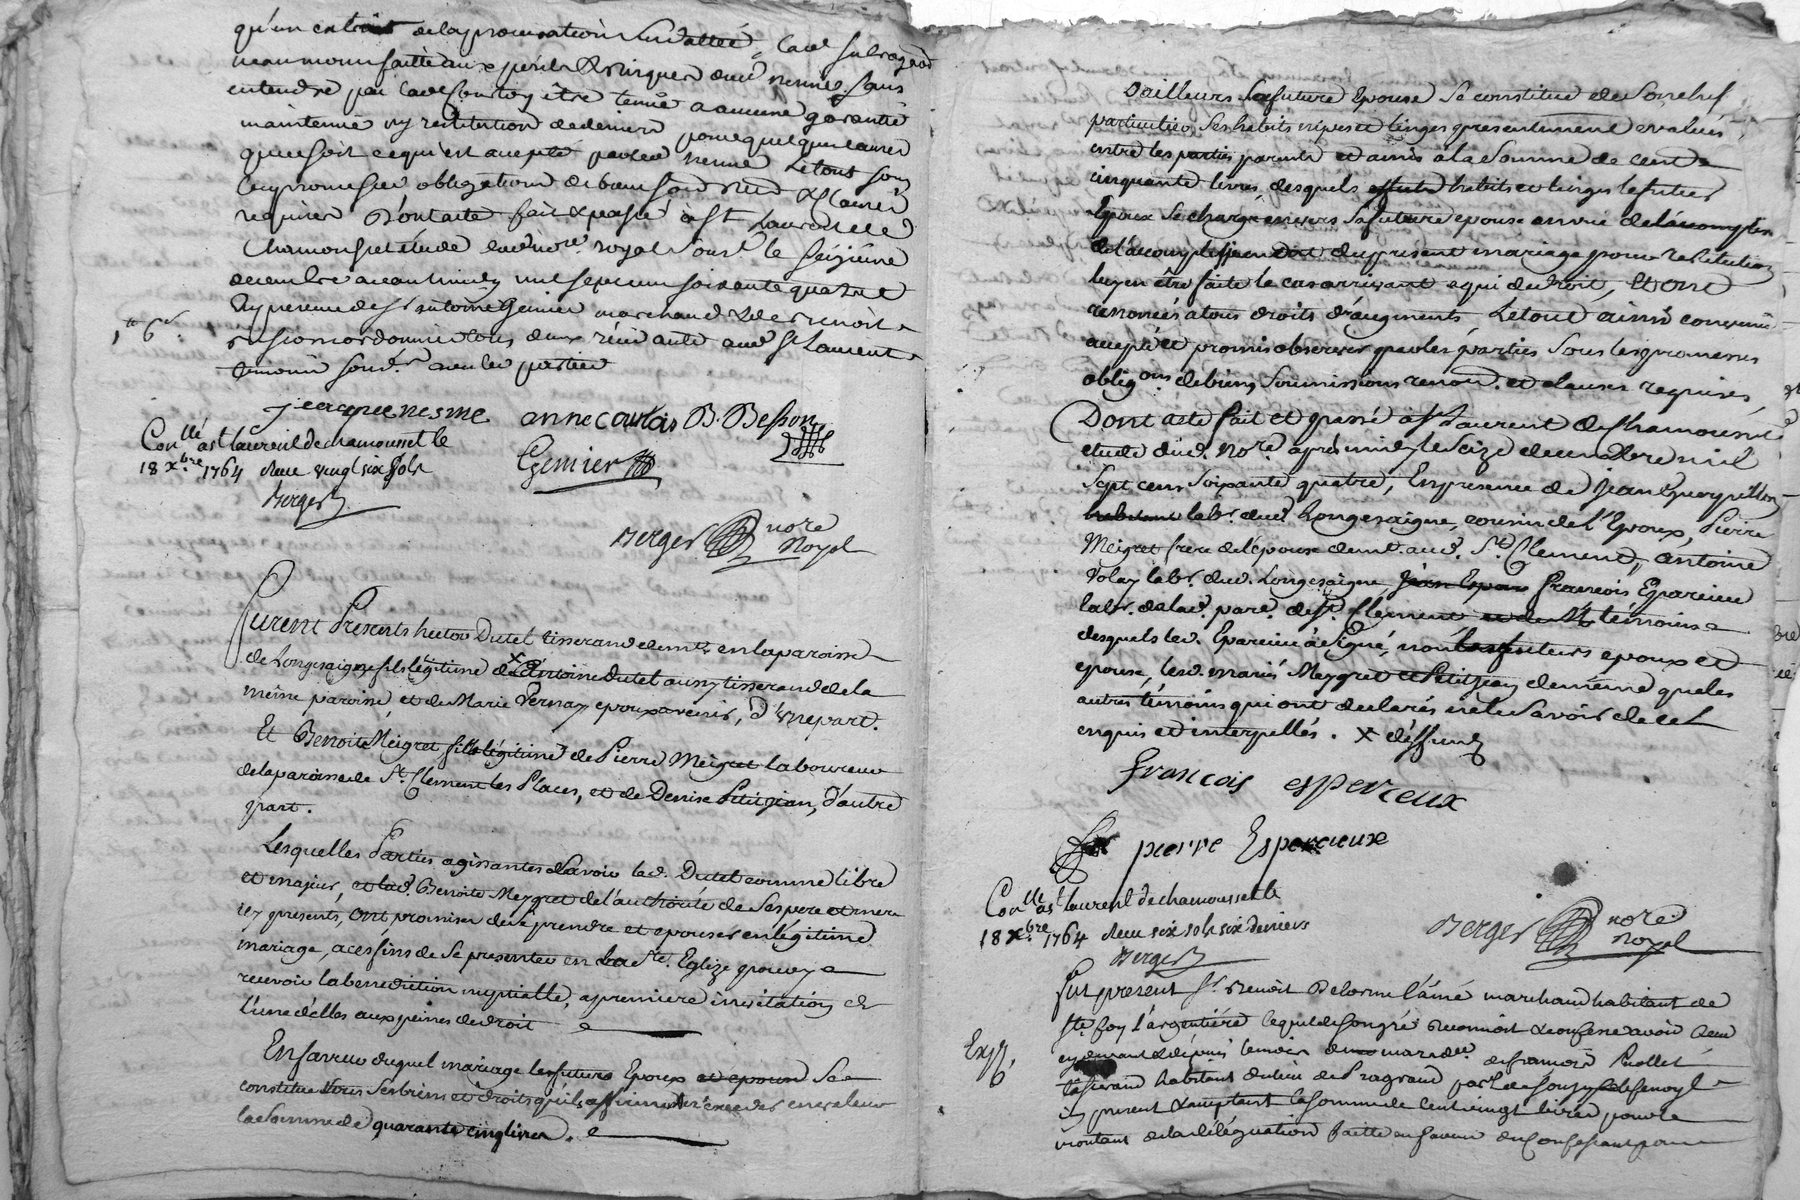 qu'un extrait de la procuration susdattée, lad.
neanmoins faitte aux perils & risques dud. nesme sans
entendre par lad. Courtoy être tenüe a aucune garantie
maintenüe ny restitution de deniers pour quelque cause
que ce soit ce qui est accepté par led. nesme Le tout sous
les promesses obligations de biens soumd. renond. & clauses
requises Dont acte fait & passé à St Laurent de
Chamousset étude dud. not.e royal sous.é le seizieme
decembre avant midy mil sept cent soixante quatre
En presence de Sr antoine Genier marchand & de benoit
besson cordonnier tous deux residants aud. St Laurent
temoins sous.és avec les parties
jeacque nesme anne courtois B. Besson
Con.llé à St laurent de chamousset le
18 xbre 1764 Reçu vingt six sols
Genier
Berger
Berger nore Royal
Furent Presents hector Dutel tisserand demt. en la paroisse
de Longesaigne fils légitime de X Antoine Dutel aussy tisserand de la
même paroisse et de Marie Vernay epoux a venir, d'une part.
Et Benoite Meigret fille légitime de Pierre Meigret laboureur
de la paroisse de St. Clement les Places, et de Denise Petitjean, d'autre
part.
Lesquelles Parties agissantes Savoir led. Dutel comme libre
et majeur, et lad. Benoite Meygret de l'authorité de Ses pere et mere
icy presents, ont promis de se prendre et epouser en légitime
mariage, a ces fins de se presenter en la Ste. Eglize pour y
recevoir la benediction nuptialle, a premiere invitation de
l'une d'elles aux peines de droit
En faveur duquel mariage les futurs Epoux et epouse Se
constitue tous Ses biens et droits qu'il affirme n'exceder en valeur
la Somme de quarante cinq livres.
D'ailleurs La future Epouse Se constitue de Son chef
particulier Ses habits nipes et linges presentement evalués
entre les parties parents et amis a la Somme de cent
cinquante livres, desquels effets habits et linges le futur
Epoux Se charge envers Sa future epouse en vue de l'accomplis
de l'accomplissement du present mariage pour restitution
luy en être faite le cas arrivant a qui de droit, Et ont
renoncés a tous droits d'augments Le tout ainsi convenu
accepté et promis observer par les parties Sous les promesses
oblig.ons de biens, Soumissions renon. et clauses requises,
Dont acte fait et passé a St Laurent de Chamousset
etude dud. Nore. après midy le Seize decembre mil
Sept cent Soixante quatre, En presence de Jean Guerpillon
habitant labr. dud. Longesaigne, cousin de l'Epoux, Pierre
Meigret frere de l'épouse demt. aud. St. Clement, antoine
Volay labr. dud. Longesaigne Jean Esparc François Esparcieu
labr. de lad. pare. de St. Clement et de M témoins
desquels led. Esparcieu a Signé, non les futurs epoux et
epouse, lesd. mariés Meygret et Petitjean de même que les
autres témoins qui ont declarés ne le Savoir de ce
enquis et interpellés. X deffunt
francois esperceux
pierre Esperceux
Con.llé à St laurent de chamousset le
18 xbre 1764 Reçu six sols six deniers
Berger
Berger nore. Royal
Fut present Sr. Benoit Delorme l'ainé marchand habitant de
Ste. foy l'argentiére lequel de son gré reconnoit & confesse avoir reçu
Exp.
tisserand habitant du lieu de
icy present & acceptant la somme de cent vingt livres pour le
montant de la délégation faitte en faveur du confessant par